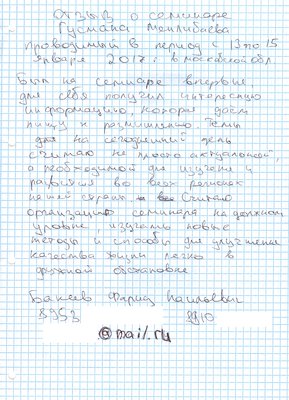 Отзыв о семинаре
Гусмана Минлибаева
проводимый в период с 13 по 15
января 2017г в Московской обл
Был на семинаре впервые
для себя получил интересную
информацию, которая даёт
пищу к размышлению Темы
для на сегодняшний день
считаю не просто актуальной,
а необходимой для изучения и
развития во всех регионах
нашей страны Считаю
организацию семинара на должном
уровне, изучать новые
методы и способы для улучшения
качества жизни легко в
дружной обстановке
Бакеев Фарид Наильевич
8953 8910
@mail.ru